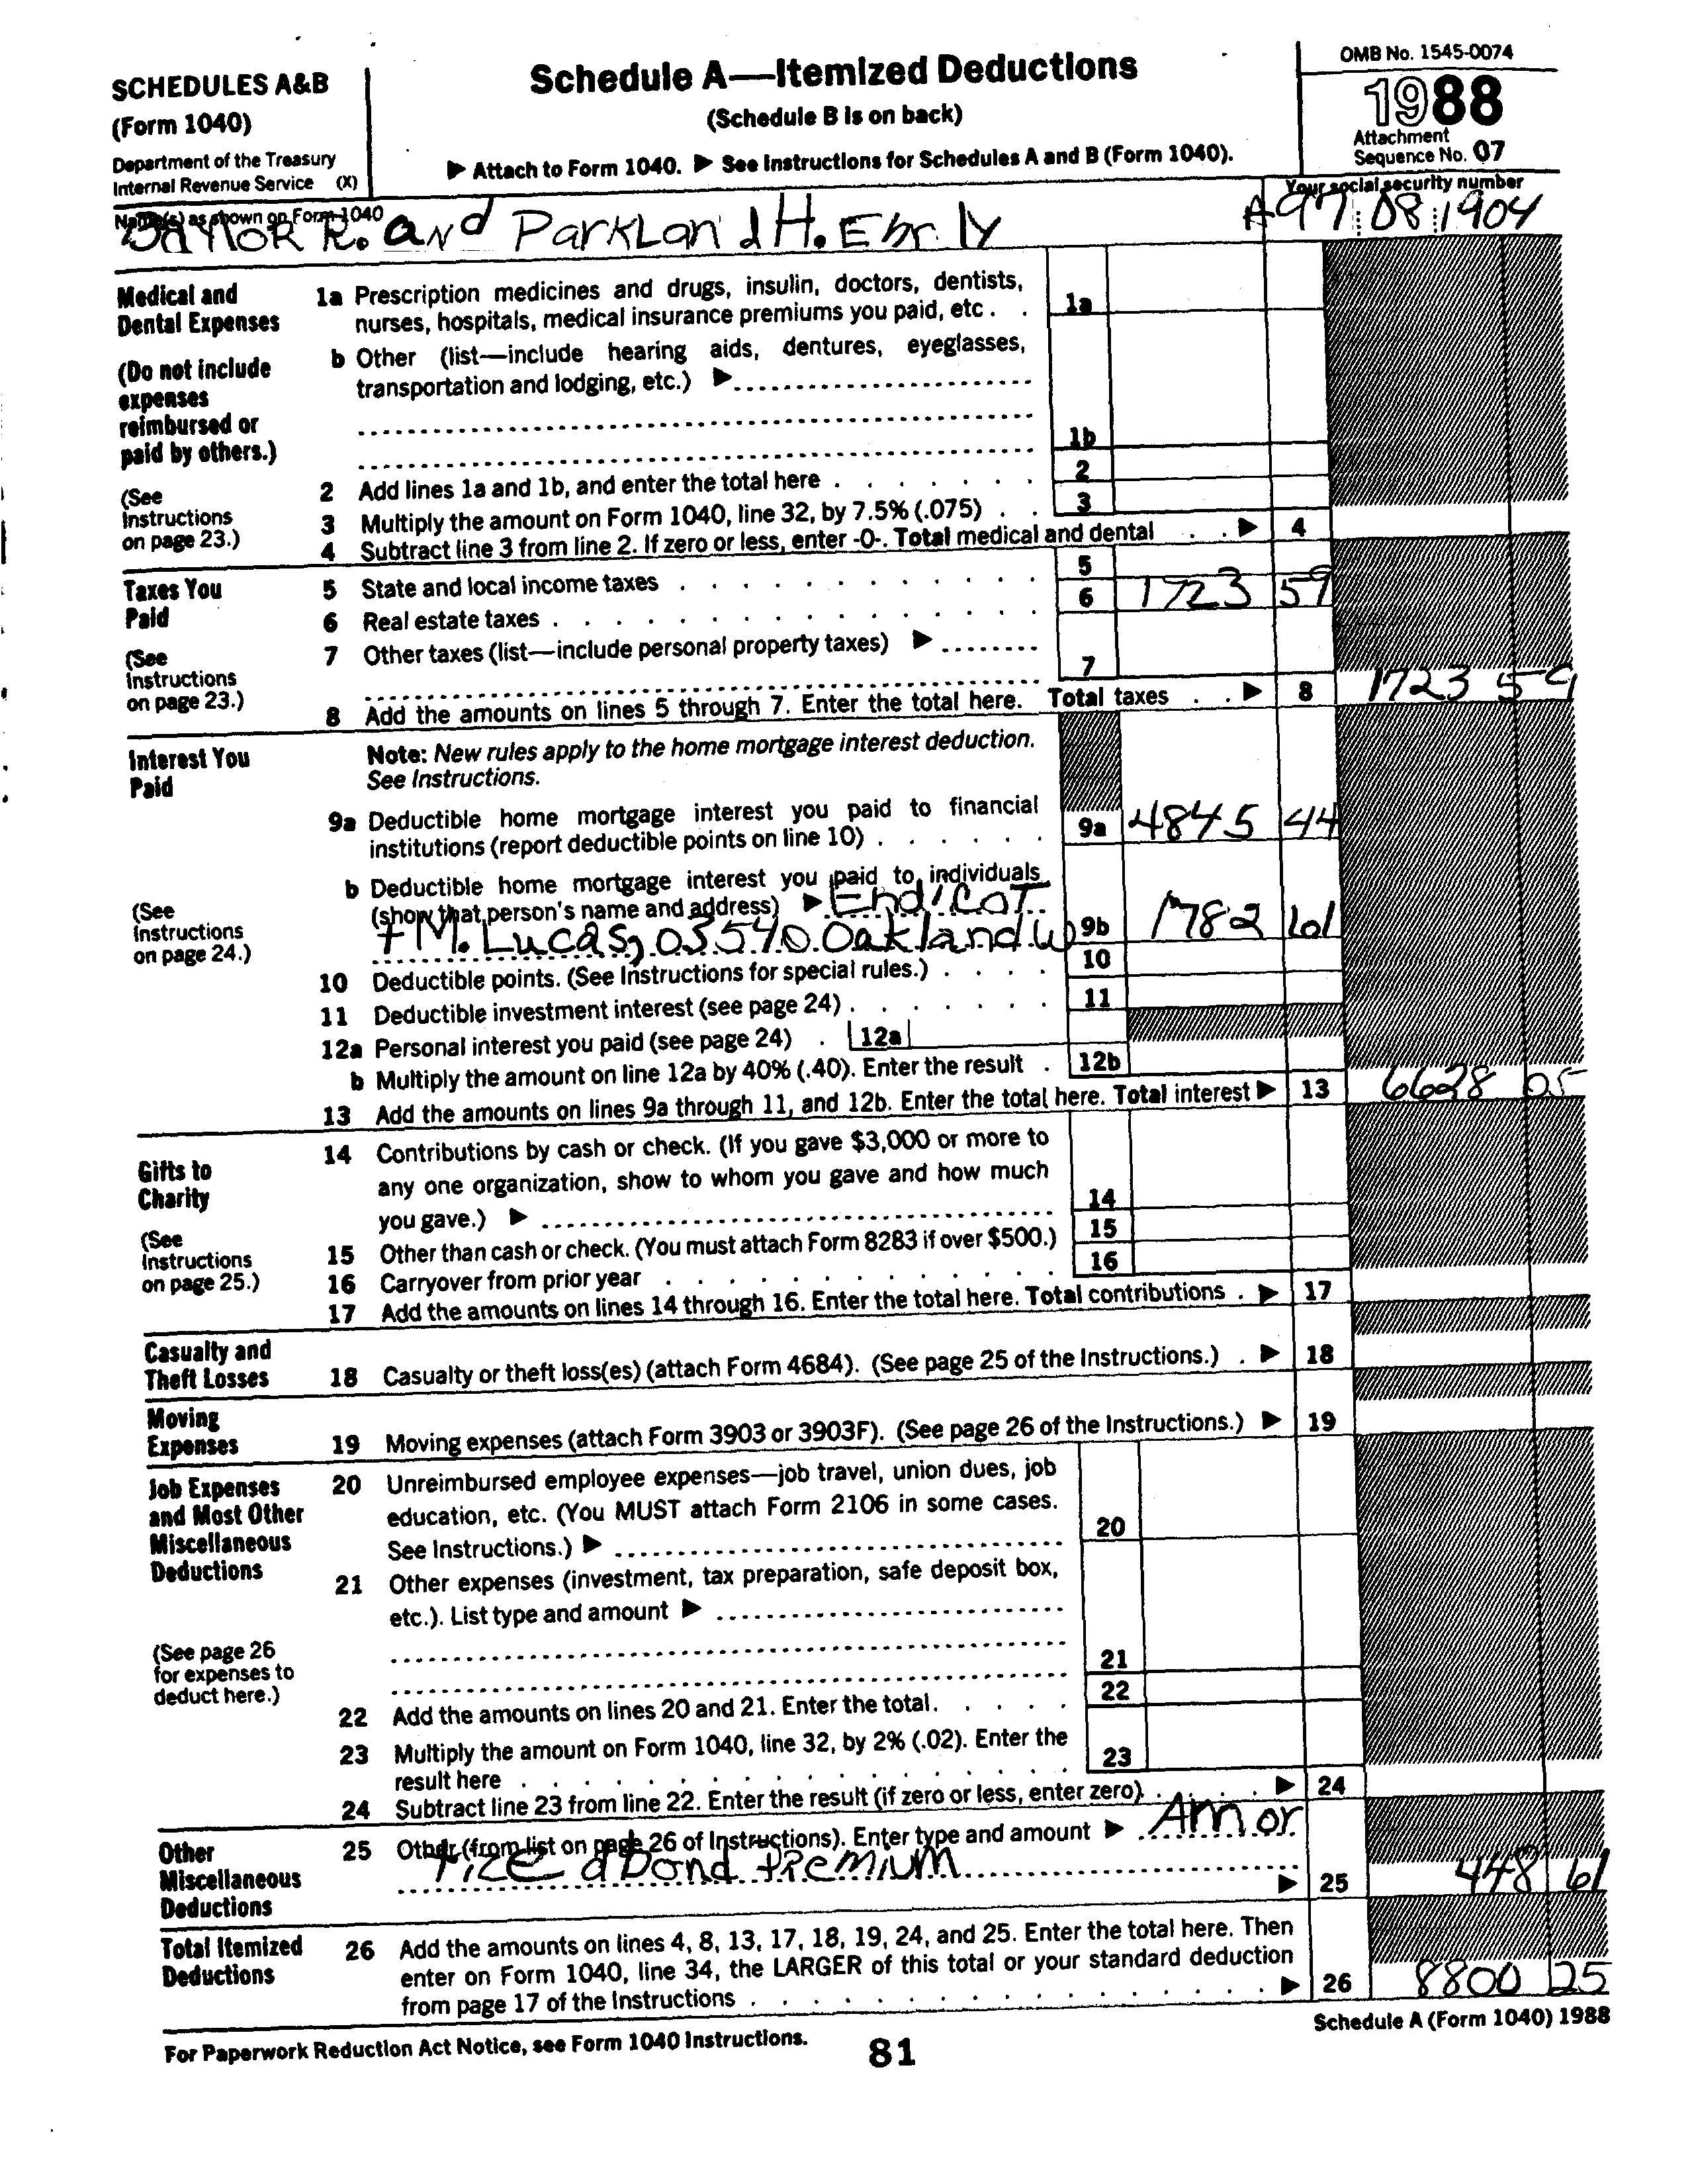 SCHEDULES A&B
(Form 1040)
Department of the Treasury
Internal Revenue Service (X)
Schedule A—Itemized Deductions
(Schedule B is on back)
▶ Attach to Form 1040. ▶ See Instructions for Schedules A and B (Form 1040).
OMB No. 1545-0074
1988
Attachment
Sequence No. 07
Name(s) as shown on Form 1040
Your social security number
R. and Parkland H. Ebrly
A97 08 1904
Medical and
Dental Expenses
(Do not include
expenses
reimbursed or
paid by others.)
(See
Instructions
on page 23.)
1a Prescription medicines and drugs, insulin, doctors, dentists,
nurses, hospitals, medical insurance premiums you paid, etc . . 1a
b Other (list—include hearing aids, dentures, eyeglasses,
transportation and lodging, etc.) ▶
1b
2 Add lines 1a and 1b, and enter the total here . . . . . . . 2
3 Multiply the amount on Form 1040, line 32, by 7.5% (.075) . . 3
4 Subtract line 3 from line 2. If zero or less, enter -0-. Total medical and dental . . ▶ 4
Taxes You
Paid
(See
Instructions
on page 23.)
5 State and local income taxes . . . . . . . . . . . 5
6 Real estate taxes . . . . . . . . . . . . . 6 1723 59
7 Other taxes (list—include personal property taxes) ▶
7
8 Add the amounts on lines 5 through 7. Enter the total here. Total taxes . . ▶ 8 1723 59
Interest You
Paid
(See
Instructions
on page 24.)
Note: New rules apply to the home mortgage interest deduction.
See Instructions.
9a Deductible home mortgage interest you paid to financial
institutions (report deductible points on line 10) . . . . . . 9a 4845 44
b Deductible home mortgage interest you paid to individuals
(show that person's name and address) ▶ Endicot
+ M. Lucas, 03540 Oakland W 9b 1782 61
10 Deductible points. (See Instructions for special rules.) . . . . 10
11 Deductible investment interest (see page 24) . . . . . . . 11
12a Personal interest you paid (see page 24) . 12a
b Multiply the amount on line 12a by 40% (.40). Enter the result . 12b
13 Add the amounts on lines 9a through 11, and 12b. Enter the total here. Total interest ▶ 13 6628 05
Gifts to
Charity
(See
Instructions
on page 25.)
14 Contributions by cash or check. (If you gave $3,000 or more to
any one organization, show to whom you gave and how much
you gave.) ▶ 14
15 Other than cash or check. (You must attach Form 8283 if over $500.) 15
16 Carryover from prior year . . . . . . . . . . . . 16
17 Add the amounts on lines 14 through 16. Enter the total here. Total contributions . ▶ 17
Casualty and
Theft Losses
18 Casualty or theft loss(es) (attach Form 4684). (See page 25 of the Instructions.) . ▶ 18
Moving
Expenses
19 Moving expenses (attach Form 3903 or 3903F). (See page 26 of the Instructions.) ▶ 19
Job Expenses
and Most Other
Miscellaneous
Deductions
(See page 26
for expenses to
deduct here.)
20 Unreimbursed employee expenses—job travel, union dues, job
education, etc. (You MUST attach Form 2106 in some cases.
See Instructions.) ▶ 20
21 Other expenses (investment, tax preparation, safe deposit box,
etc.). List type and amount ▶
21
22 Add the amounts on lines 20 and 21. Enter the total. . . . . 22
23 Multiply the amount on Form 1040, line 32, by 2% (.02). Enter the
result here . . . . . . . . . . . . . . . . 23
24 Subtract line 23 from line 22. Enter the result (if zero or less, enter zero). . . . . ▶ 24
Other
Miscellaneous
Deductions
25 Other (from list on page 26 of Instructions). Enter type and amount ▶ Amor
tize d bond premium
▶ 25 448 61
Total Itemized
Deductions
26 Add the amounts on lines 4, 8, 13, 17, 18, 19, 24, and 25. Enter the total here. Then
enter on Form 1040, line 34, the LARGER of this total or your standard deduction
from page 17 of the Instructions . . . . . . . . . . . . . . . ▶ 26 8800 25
For Paperwork Reduction Act Notice, see Form 1040 Instructions.
81
Schedule A (Form 1040) 1988